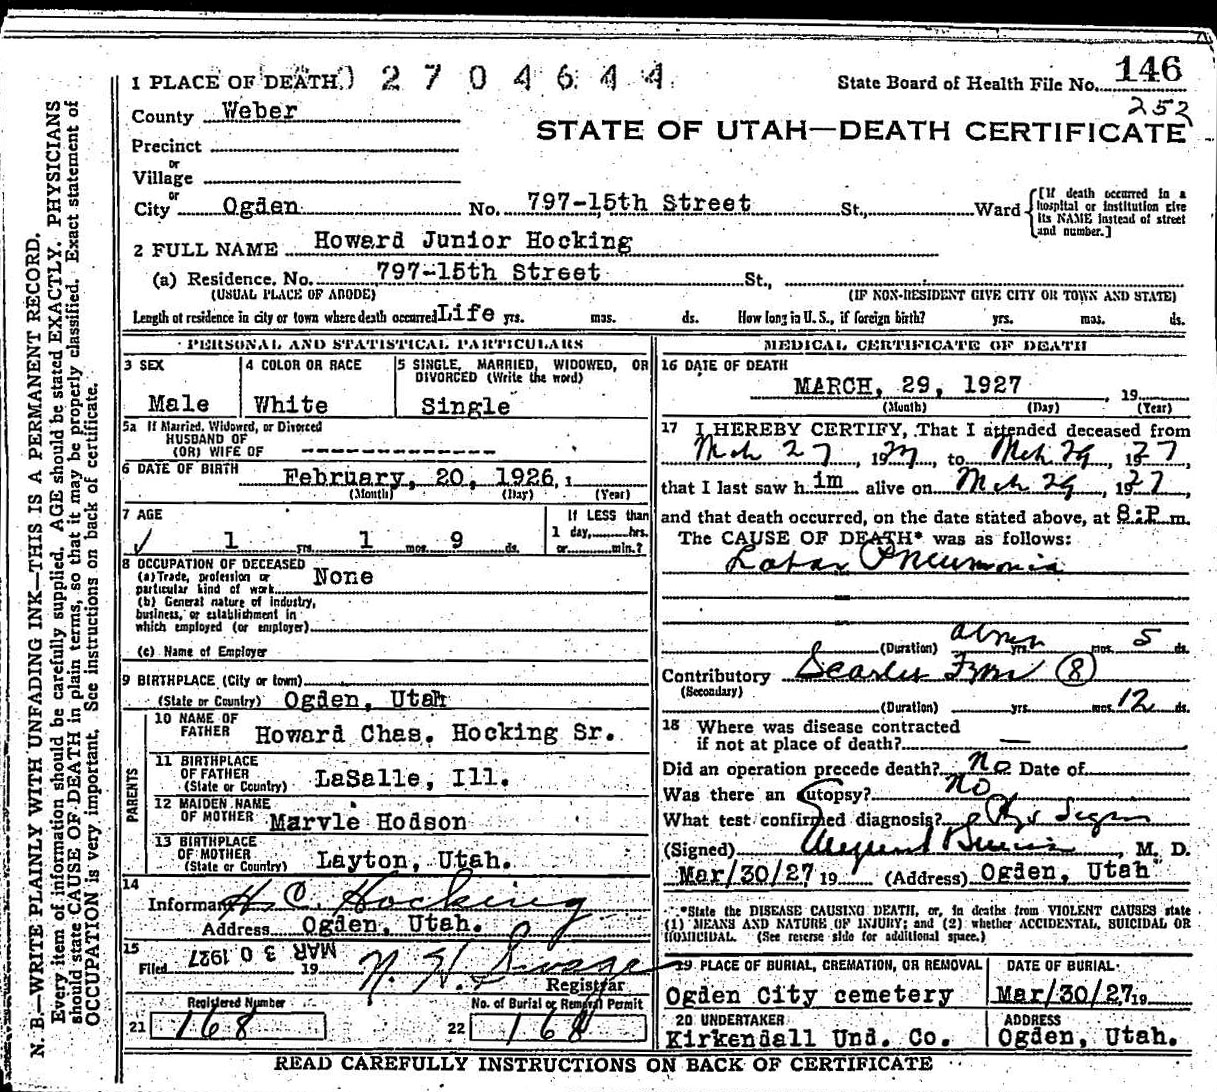 1 PLACE OF DEATH 2 7 0 4 6 4 4
State Board of Health File No. 146
252
County Weber
STATE OF UTAH—DEATH CERTIFICATE
Precinct
or
Village
or
City Ogden No. 797-15th Street St., Ward
[If death occurred in a hospital or institution give its NAME instead of street and number.]
2 FULL NAME Howard Junior Hocking
(a) Residence. No. 797-15th Street St.,
(USUAL PLACE OF ABODE) (IF NON-RESIDENT GIVE CITY OR TOWN AND STATE)
Length of residence in city or town where death occurred Life yrs. mos. ds. How long in U. S., if foreign birth? yrs. mos. ds.
PERSONAL AND STATISTICAL PARTICULARS
3 SEX
Male
4 COLOR OR RACE
White
5 SINGLE, MARRIED, WIDOWED, OR
DIVORCED (Write the word)
Single
5a If Married, Widowed, or Divorced
HUSBAND OF
(OR) WIFE OF --------------
6 DATE OF BIRTH February, 20, 1926, 1
(Month) (Day) (Year)
7 AGE
1 yrs. 1 mos. 9 ds.
If LESS than
1 day, hrs.
or min.?
8 OCCUPATION OF DECEASED
(a) Trade, profession or
particular kind of work None
(b) General nature of industry,
business, or establishment in
which employed (or employer)
(c) Name of Employer
9 BIRTHPLACE (City or town)
(State or Country) Ogden, Utah
PARENTS
10 NAME OF
FATHER Howard Chas. Hocking Sr.
11 BIRTHPLACE
OF FATHER
(State or Country) LaSalle, Ill.
12 MAIDEN NAME
OF MOTHER Marvle Hodson
13 BIRTHPLACE
OF MOTHER
(State or Country) Layton, Utah.
14
Informant H. C. Hocking
Address Ogden, Utah.
15
Filed MAR 30 1927 19
Registrar
Registered Number
21 168
No. of Burial or Removal Permit
22 168
MEDICAL CERTIFICATE OF DEATH
16 DATE OF DEATH
MARCH, 29, 1927 19
(Month) (Day) (Year)
17 I HEREBY CERTIFY, That I attended deceased from
Mch 27, 1927, to Mch 29, 1927,
that I last saw him alive on Mch 29, 1927,
and that death occurred, on the date stated above, at 8:P m.
The CAUSE OF DEATH* was as follows:
Lobar Pneumonia
(Duration) yrs. mos. 5 ds.
Contributory Scarlet Fever (8)
(Secondary)
(Duration) yrs. mos. 12 ds.
18 Where was disease contracted
if not at place of death? —
Did an operation precede death? No Date of
Was there an autopsy? No
What test confirmed diagnosis?
(Signed) , M. D.
Mar/30/27 19 (Address) Ogden, Utah
*State the DISEASE CAUSING DEATH, or, in deaths from VIOLENT CAUSES state
(1) MEANS AND NATURE OF INJURY; and (2) whether ACCIDENTAL, SUICIDAL OR
HOMICIDAL. (See reverse side for additional space.)
19 PLACE OF BURIAL, CREMATION, OR REMOVAL
Ogden City cemetery
DATE OF BURIAL
Mar/30/27 19
20 UNDERTAKER
Kirkendall Und. Co.
ADDRESS
Ogden, Utah.
READ CAREFULLY INSTRUCTIONS ON BACK OF CERTIFICATE
N. B.—WRITE PLAINLY WITH UNFADING INK—THIS IS A PERMANENT RECORD.
Every item of information should be carefully supplied. AGE should be stated EXACTLY. PHYSICIANS
should state CAUSE OF DEATH in plain terms, so that it may be properly classified. Exact statement of
OCCUPATION is very important. See instructions on back of certificate.